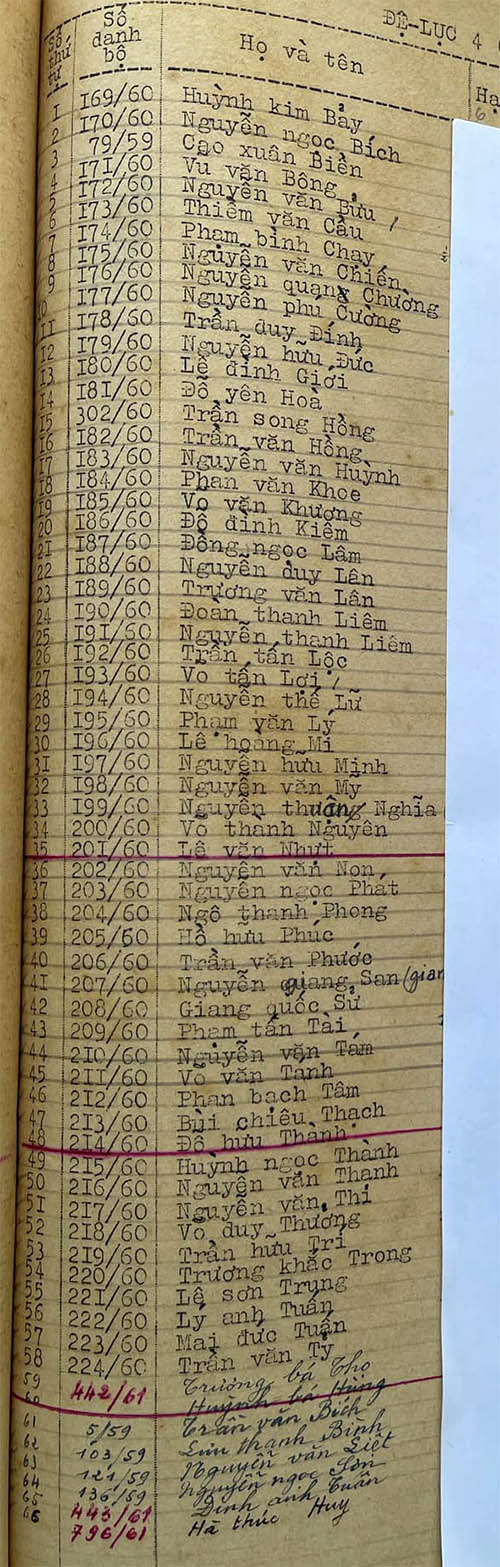 ĐỆ-LỤC 4
Số thứ tự Số danh bộ Họ và tên Hạ
1 169/60 Huỳnh kim Bảy
2 170/60 Nguyễn ngọc Bích
3 79/59 Cao xuân Biền
4 171/60 Vu văn Bông
5 172/60 Nguyễn văn Bửu /
6 173/60 Thiềm văn Cầu
7 174/60 Phạm bình Chay
8 175/60 Nguyễn văn Chiến
9 176/60 Nguyễn quang Chường
10 177/60 Nguyễn phú Cường
11 178/60 Trần duy Đính
12 179/60 Nguyễn hữu Đức
13 180/60 Lê đình Giới
14 181/60 Đỗ yên Hoà
15 302/60 Trần song Hồng
16 182/60 Trần văn Hồng
17 183/60 Nguyễn văn Huỳnh
18 184/60 Phan văn Khoe
19 185/60 Vo văn Khương
20 186/60 Đỗ đình Kiêm
21 187/60 Đồng ngọc Lâm
22 188/60 Nguyễn duy Lân
23 189/60 Trương văn Lân
24 190/60 Đoàn thanh Liêm
25 191/60 Nguyễn thanh Liêm
26 192/60 Trần tấn Lộc
27 193/60 Vo tấn Lợi /
28 194/60 Nguyễn thế Lữ
29 195/60 Phạm văn Lý
30 196/60 Lê hoàng Mi
31 197/60 Nguyễn hữu Minh
32 198/60 Nguyễn văn Mỹ
33 199/60 Nguyễn thượng Nghĩa
34 200/60 Vo thành Nguyên
35 201/60 Lê văn Nhựt
36 202/60 Nguyễn văn Non
37 203/60 Nguyễn ngọc Phát
38 204/60 Ngô thanh Phong
39 205/60 Hồ hữu Phúc
40 206/60 Trần văn Phước
41 207/60 Nguyễn giang San (gian
42 208/60 Giang quốc Sử
43 209/60 Phạm tấn Tài
44 210/60 Nguyễn văn Tam
45 211/60 Vo văn Tánh
46 212/60 Phan bạch Tâm
47 213/60 Bùi chiêu Thạch
48 214/60 Đỗ hưu Thành
49 215/60 Huỳnh ngọc Thành
50 216/60 Nguyễn văn Thanh
51 217/60 Nguyễn văn Thi
52 218/60 Vo duy Thương
53 219/60 Trần hữu Trí
54 220/60 Trương khắc Trong
55 221/60 Lê sơn Trung
56 222/60 Lý anh Tuấn
57 223/60 Mai đức Tuấn
58 224/60 Trần văn Tỷ
59 442/61 Trương bá Thọ
60 Huỳnh bá Hùng
61 5/59 Trần văn Bích
62 103/59 Lưu thanh Bình
63 121/59 Nguyễn văn Liệt
64 136/59 Nguyễn ngọc Sơn
65 443/61 Đinh anh Tuấn
66 796/61 Hà thúc Huy